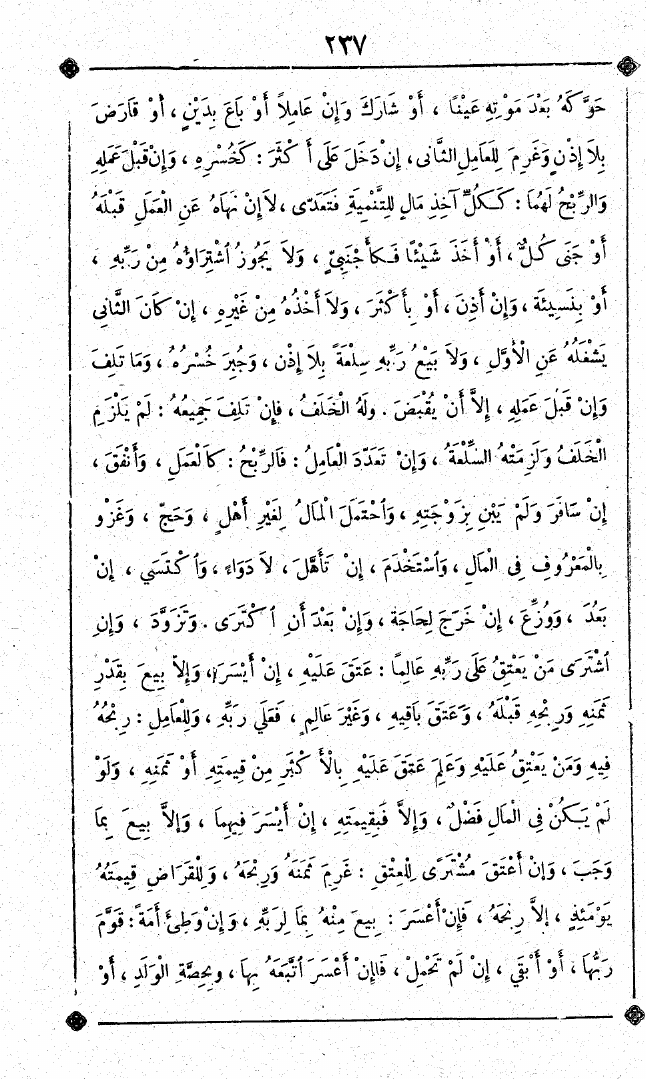 ٢٣٧
حَرَّكَهُ بَعْدَ مَوْتِهِ عَيْنًا ، أَوْ شَارَكَ وَإِنْ عَامِلاً أَوْ بَاعَ بِدَيْنٍ ، أَوْ قَارَضَ
بِلاَ إِذْنٍ وَغَرِمَ لِلْعَامِلِ الثَّانِى ، إِنْ دَخَلَ عَلَى أَكْثَرَ : كَخُسْرِهِ ، وَإِنْ قَبْلَ عَمَلِهِ
وَالرِّبْحُ لَهُمَا : كَـكُلِّ آخِذِ مَالٍ لِلتَّنْمِيَةِ فَتَعَدَّى ، لاَ إِنْ نَهَاهُ عَنِ الْعَمَلِ قَبْلَهُ
أَوْ جَنَى كُلٌّ ، أَوْ أَخَذَ شَيْئًا فَـكَأَجْنَبِىٍّ ، وَلاَ يَجُوزُ اُشْتِرَاؤُهُ مِنْ رَبِّهِ ،
أَوْ بِنَسِيئَةٍ ، وَإِنْ أَذِنَ ، أَوْ بِأَكْثَرَ ، وَلاَ أَخْذُهُ مِنْ غَيْرِهِ ، إِنْ كَانَ الثَّانِى
يَشْغَلُهُ عَنِ الْأَوَّلِ ، وَلاَ بَيْعُ رَبِّهِ سِلْعَةً بِلاَ إِذْنٍ ، وَجُبِرَ خُسْرُهُ ، وَمَا تَلِفَ
وَإِنْ قَبْلَ عَمَلِهِ ، إِلاَّ أَنْ يُقْبَضَ . ولَهُ الْخَلَفُ ، فَإِنْ تَلِفَ جَمِيعُهُ : لَمْ يَلْزَمِ
الْخَلَفُ وَلَزِمَتْهُ السِّلْعَةُ ، وَإِنْ تَعَدَّدَ الْعَامِلُ : فَالرِّبْحُ : كَالْعَمَلِ ، وَأَنْفَقَ ،
إِنْ سَافَرَ وَلَمْ يَبْنِ بِزَوْجَتِهِ ، وَاُحْتَمَلَ الْمَالُ لِغَيْرِ أَهْلٍ ، وَحَجٍّ ، وَغَزْوٍ
بِالْمَعْرُوفِ فِى الْمَالِ ، وَاُسْتَخْدَمَ ، إِنْ تَأَهَّلَ ، لاَ دَوَاءٍ ، وَاُكْتَسَى ، إِنْ
بَعُدَ ، وَوُزِّعَ ، إِنْ خَرَجَ لِحَاجَةٍ ، وَإِنْ بَعْدَ أَنِ اُكْتَرَى . وَتَزَوَّدَ ، وَإِنِ
اُشْتَرَى مَنْ يَعْتِقُ عَلَى رَبِّهِ عَالِمًا : عَتَقَ عَلَيْهِ ، إِنْ أَيْسَرَ ، وَإِلاَّ بِيعَ بِقَدْرِ
ثَمَنِهِ وَرِبْحِهِ قَبْلَهُ ، وَعَتَقَ بَاقِيهِ ، وَغَيْرَ عَالِمٍ ، فَعَلَى رَبِّهِ ، وَلِلْعَامِلِ : رِبْحُهُ
فِيهِ وَمَنْ يَعْتِقُ عَلَيْهِ وَعَلِمَ عَتَقَ عَلَيْهِ بِالْأَكْثَرِ مِنْ قِيمَتِهِ أَوْ ثَمَنِهِ ، وَلَوْ
لَمْ يَـكُنْ فِى الْمَالِ فَضْلٌ ، وَإِلاَّ فَبِقِيمَتِهِ ، إِنْ أَيْسَرَ فِيهِمَا ، وَإِلاَّ بِيعَ بِمَا
وَجَبَ ، وَإِنْ أَعْتَقَ مُشْتَرًى لِلْعِتْقِ : غَرِمَ ثَمَنَهُ وَرِبْحَهُ ، وَلِلْقِرَاضِ قِيمَتَهُ
يَوْمَئِذٍ ، إِلاَّ رِبْحَهُ ، فَإِنْ أَعْسَرَ : بِيعَ مِنْهُ بِمَا لِرَبِّهِ ، وَإِنْ وَطِئَ أَمَةً : قَوَّمَ
رَبُّهَا ، أَوْ أَبْقَى ، إِنْ لَمْ تَحْمِلْ ، فَإِنْ أَعْسَرَ اُتَّبَعَهُ بِهَا ، وبِحِصَّةِ الْوَلَدِ ، أَوْ